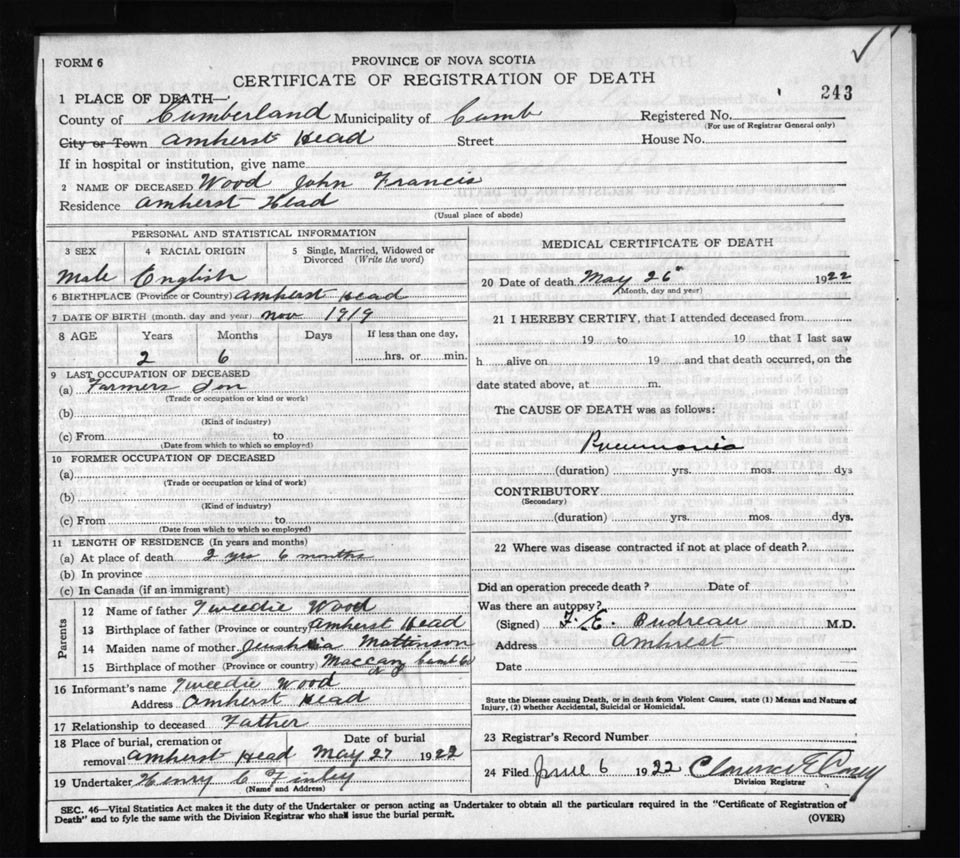 FORM 6
PROVINCE OF NOVA SCOTIA
CERTIFICATE OF REGISTRATION OF DEATH
243
1 PLACE OF DEATH—
County of Cumberland Municipality of Cumb Registered No.
(For use of Registrar General only)
City or Town Amherst Head Street House No.
If in hospital or institution, give name
2 NAME OF DECEASED Wood John Francis
Residence Amherst Head
(Usual place of abode)
PERSONAL AND STATISTICAL INFORMATION
3 SEX 4 RACIAL ORIGIN 5 Single, Married, Widowed or Divorced (Write the word)
Male English
6 BIRTHPLACE (Province or Country) Amherst Head
7 DATE OF BIRTH (month, day and year) Nov 1919
8 AGE Years Months Days If less than one day,
2 6 hrs. or min.
9 LAST OCCUPATION OF DECEASED
(a) Farmers Son
(Trade or occupation or kind or work)
(b)
(Kind of industry)
(c) From to
(Date from which to which so employed)
10 FORMER OCCUPATION OF DECEASED
(a)
(Trade or occupation or kind of work)
(b)
(Kind of industry)
(c) From to
(Date from which to which so employed)
11 LENGTH OF RESIDENCE (In years and months)
(a) At place of death 2 yrs 6 months
(b) In province
(c) In Canada (if an immigrant)
Parents
12 Name of father Tweedie Wood
13 Birthplace of father (Province or country) Amherst Head
14 Maiden name of mother Mattinson
15 Birthplace of mother (Province or country) Maccan Cumb Co
N S
16 Informant's name Tweedie Wood
Address Amherst Head
17 Relationship to deceased Father
18 Place of burial, cremation or removal Amherst Head Date of burial May 27 1922
19 Undertaker Henry C Finley
(Name and Address)
MEDICAL CERTIFICATE OF DEATH
20 Date of death May 26" 1922
(Month, day and year)
21 I HEREBY CERTIFY, that I attended deceased from
19 to 19 that I last saw
h alive on 19 and that death occurred, on the
date stated above, at m.
The CAUSE OF DEATH was as follows:
Pneumonia
(duration) yrs. mos. dys
CONTRIBUTORY
(Secondary)
(duration) yrs. mos. dys.
22 Where was disease contracted if not at place of death?
Did an operation precede death? Date of
Was there an autopsy?
(Signed) F. E. Budreau M.D.
Address Amhrest
Date
State the Disease causing Death, or in death from Violent Causes, state (1) Means and Nature of
Injury, (2) whether Accidental, Suicidal or Homicidal.
23 Registrar's Record Number
24 Filed June 6 1922 Clarence E
Division Registrar
SEC. 46—Vital Statistics Act makes it the duty of the Undertaker or person acting as Undertaker to obtain all the particulars required in the "Certificate of Registration of
Death" and to fyle the same with the Division Registrar who shall issue the burial permit.
(OVER)